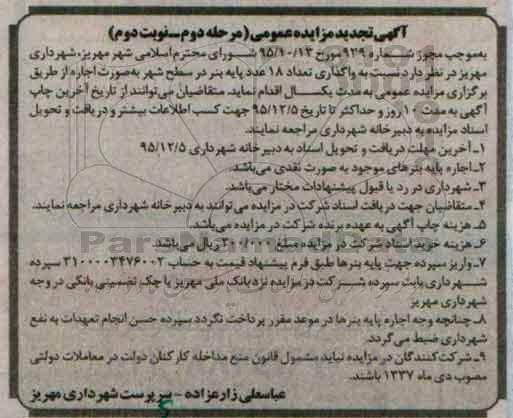 آگهی تجدید مزایده عمومی (مرحله دوم ـ نوبت دوم)
به‌موجب مجوز شماره ۹۲۹ مورخ ۹۵/۱۰/۱۳ شورای محترم اسلامی شهر مهریز، شهرداری
مهریز در نظر دارد نسبت به واگذاری تعداد ۱۸ عدد پایه بنر در سطح شهر به‌صورت اجاره از طریق
برگزاری مزایده عمومی به مدت یکسال اقدام نماید. متقاضیان می‌توانند از تاریخ آخرین چاپ
آگهی به مدت ۱۰ روز و حداکثر تا تاریخ ۹۵/۱۲/۵ جهت کسب اطلاعات بیشتر و دریافت و تحویل
اسناد مزایده به دبیرخانه شهرداری مراجعه نمایند.
۱ـ آخرین مهلت دریافت و تحویل اسناد به دبیرخانه شهرداری ۹۵/۱۲/۵
۲ـ اجاره پایه بنرهای موجود به صورت نقدی می‌باشد.
۳ـ شهرداری در رد یا قبول پیشنهادات مختار می‌باشد.
۴ـ متقاضیان جهت دریافت اسناد شرکت در مزایده می‌توانند به دبیرخانه شهرداری مراجعه نمایند.
۵ـ هزینه چاپ آگهی به عهده برنده شرکت در مزایده می‌باشد.
۶ـ هزینه خرید اسناد شرکت در مزایده مبلغ ۲۰۰/۰۰۰ ریال می‌باشد.
۷ـ واریز سپرده جهت پایه بنرها طبق فرم پیشنهاد قیمت به حساب ۳۱۰۰۰۰۳۴۷۶۰۰۲ سپرده
شهرداری بابت سپرده شرکت در مزایده نزد بانک ملی مهریز یا چک تضمینی بانکی در وجه
شهرداری مهریز
۸ـ چنانچه وجه اجاره پایه بنرها در موعد مقرر پرداخت نگردد سپرده حسن انجام تعهدات به نفع
شهرداری ضبط می‌گردد.
۹ـ شرکت‌کنندگان در مزایده نباید مشمول قانون منع مداخله کارکنان دولت در معاملات دولتی
مصوب دی ماه ۱۳۳۷ باشند.
عباسعلی زارعزاده ـ سرپرست شهرداری مهریز